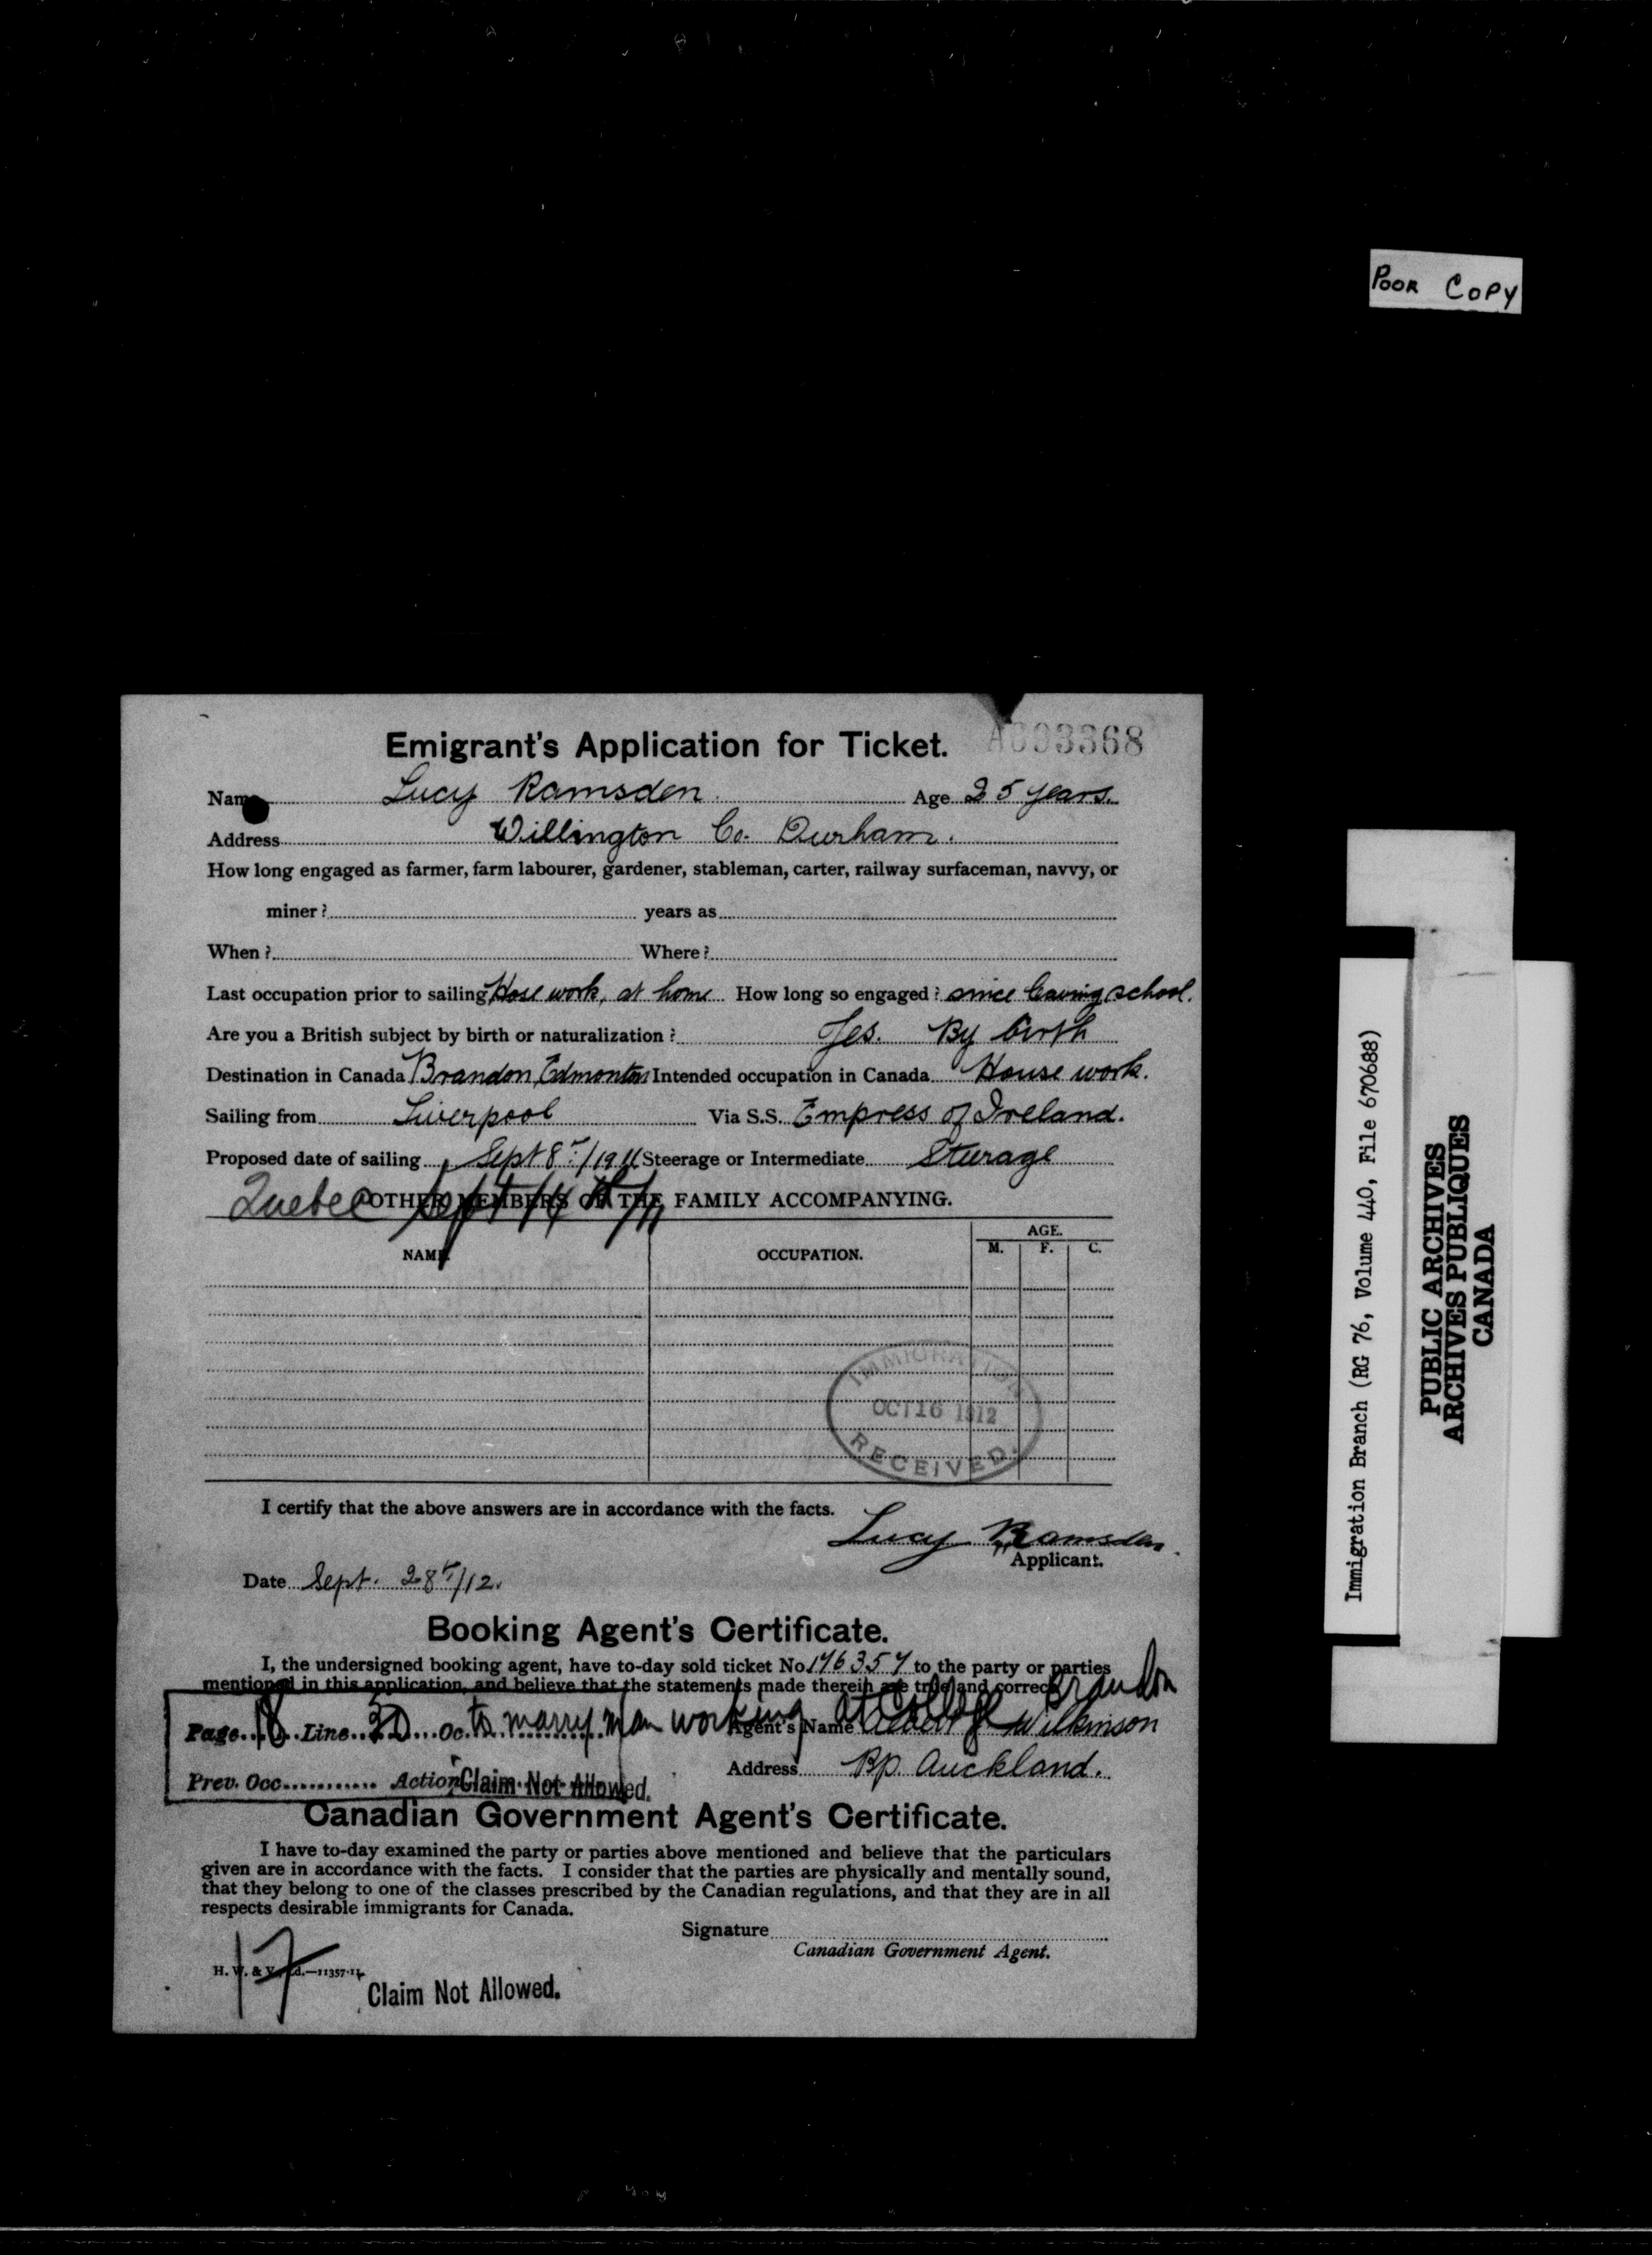 POOR COPY
Emigrant's Application for Ticket. A003368
Name Lucy Ramsden. Age 25 years.
Address Willington Co. Durham.
How long engaged as farmer, farm labourer, gardener, stableman, carter, railway surfaceman, navvy, or
miner? years as
When? Where?
Last occupation prior to sailing Hose work, at home How long so engaged? since leaving school.
Are you a British subject by birth or naturalization? Yes. By birth
Destination in Canada Brandon, Edmonton Intended occupation in Canada House work.
Sailing from Liverpool Via S.S. Empress of Ireland.
Proposed date of sailing Sept 8th/1911 Steerage or Intermediate Sturage
Quebec Sept 14th/11
OTHER MEMBERS OF THE FAMILY ACCOMPANYING.
NAME OCCUPATION. AGE.
M. F. C.
IMMIGRATION
OCT 16 1912
RECEIVED.
I certify that the above answers are in accordance with the facts.
Lucy Ramsden.
Applicant.
Date Sept. 28th/12.
Booking Agent's Certificate.
I, the undersigned booking agent, have to-day sold ticket No. 146357 to the party or parties
mentioned in this application, and believe that the statements made therein are true and correct.
Page 18 Line 30 Oc. to marry man working at College Brandon
Agent's Name Albert J. Wilkinson
Address Bp. Auckland.
Prev. Occ. Action Claim Not Allowed.
Canadian Government Agent's Certificate.
I have to-day examined the party or parties above mentioned and believe that the particulars
given are in accordance with the facts. I consider that the parties are physically and mentally sound,
that they belong to one of the classes prescribed by the Canadian regulations, and that they are in all
respects desirable immigrants for Canada.
Signature
Canadian Government Agent.
H. W. & V. Ld.—11357-11
17
Claim Not Allowed.
Immigration Branch (RG 76, Volume 440, File 670688)
PUBLIC ARCHIVES
ARCHIVES PUBLIQUES
CANADA